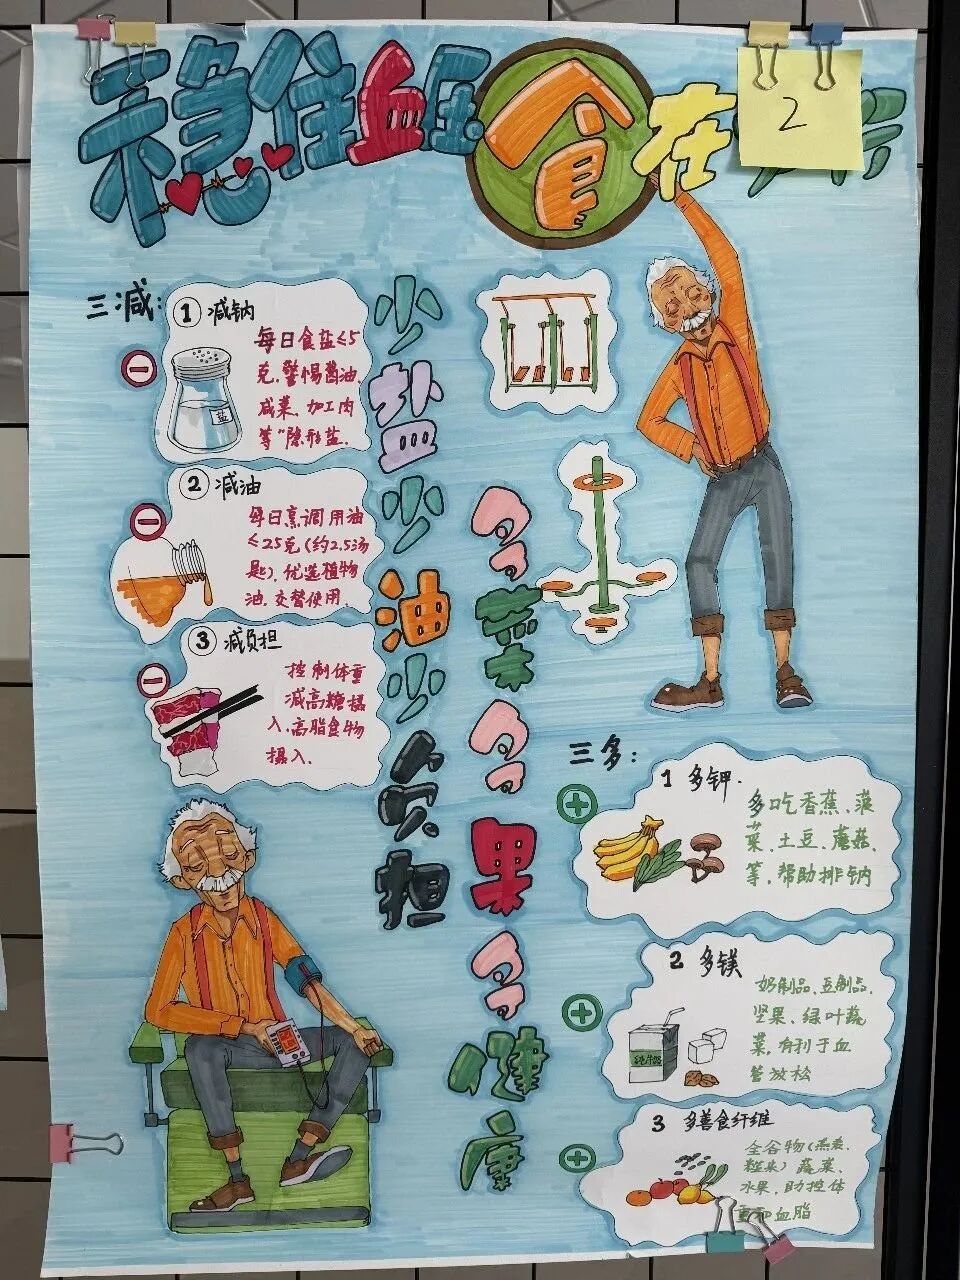 稳住血压食在
2
三减:
① 减钠
每日食盐≤5
克,警惕酱油、
咸菜、加工肉
等"隐形盐.
盐
② 减油
每日烹调用油
≤25克(约2.5汤
匙),优选植物
油,交替使用.
③ 减负担
控制体重
减高糖摄
入、高脂食物
摄入.
少盐少油少负担
多多菜多多果多多健康
三多:
1 多钾.
多吃香蕉、菠
菜、土豆、蘑菇、
等,帮助排钠
2 多镁
奶制品、豆制品、
坚果、绿叶蔬
菜,有利于血
管放松
纯牛奶
3 多善食纤维
全谷物(燕麦、
糙米)蔬菜、
水果,助控体
重和血脂